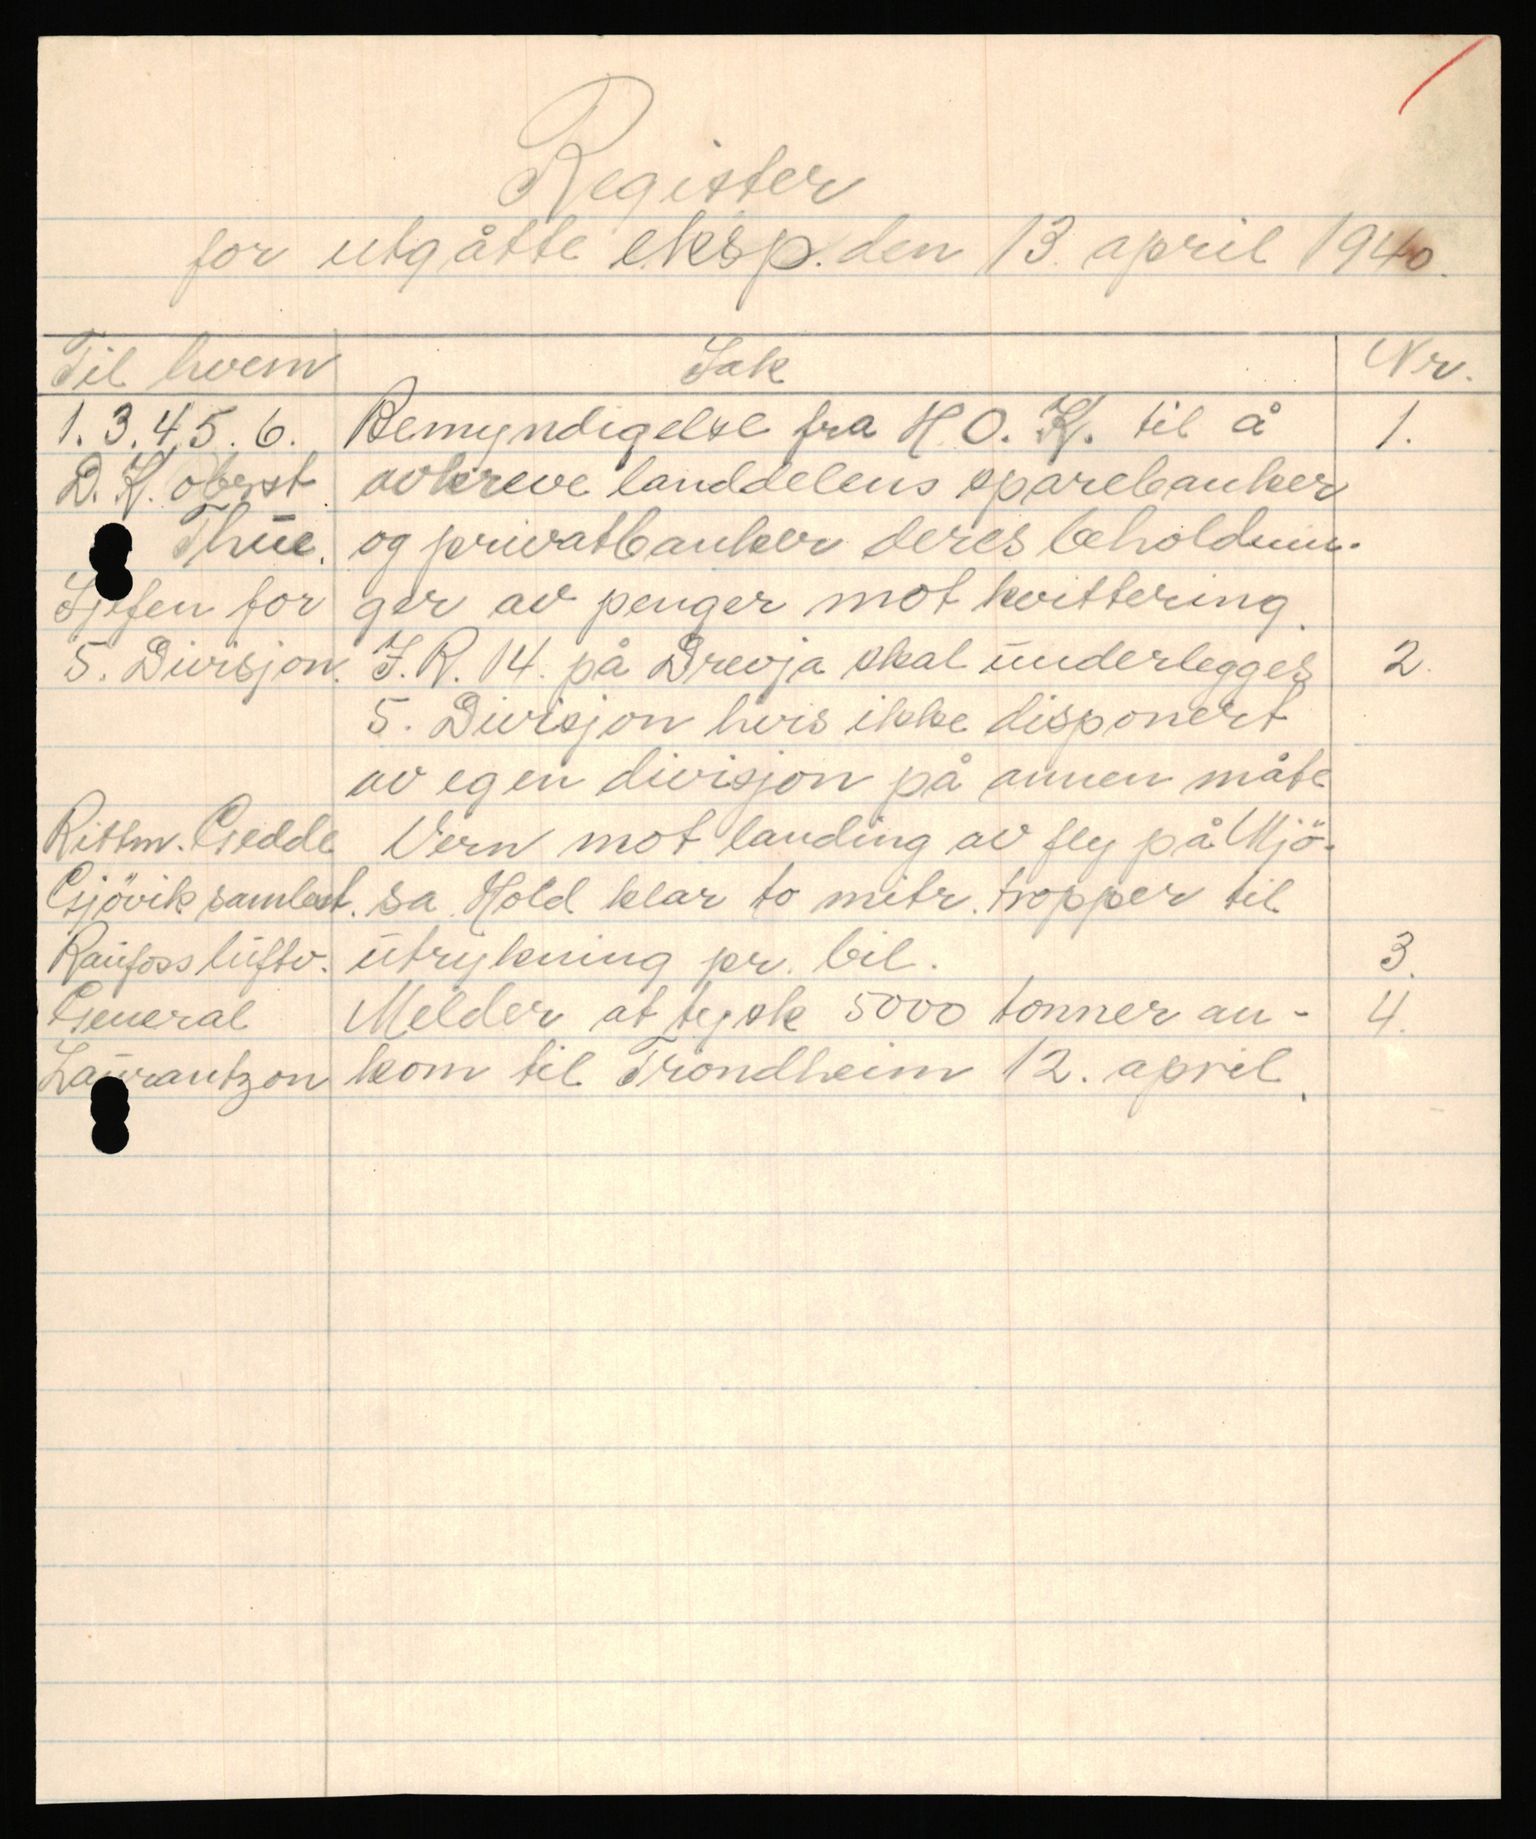 Register
for utgåtte eksp. den 13. april 1940.
Til hvem Sak Nr.
1. 3. 4. 5. 6. Bemyndigelse fra H.O.K. til å 1.
D.K. oberst avkreve landdelens sparebanker
Thue. og privatbanker deres beholdnin-
Sjefen for ger av penger mot kvittering.
5. Divisjon. I.R. 14. på Drevja skal underlegges 2.
5. Divisjon hvis ikke disponert
av egen divisjon på annen måte
Rittm. Gedde Vern mot landing av fly på Mjö-
Gjövik sambest. sa. Hold klar to mitr. tropper til
Raufoss luftv. utrykning pr. bil. 3.
General Melder at tysk 5000 tonner an- 4.
Laurantzon kom til Trondheim 12. april.